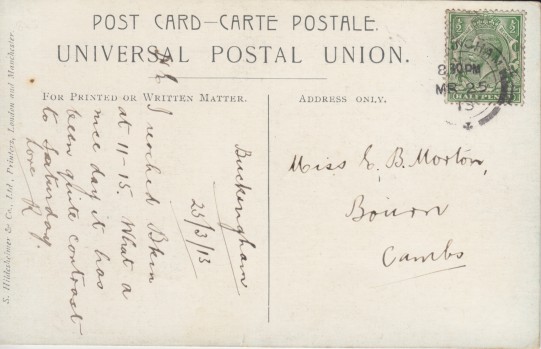 POST CARD—CARTE POSTALE.
UNIVERSAL POSTAL UNION.
FOR PRINTED OR WRITTEN MATTER.
ADDRESS ONLY.
Buckingham
25/3/13
I reached Bkm
at 11-15. What a
nice day it has
been quite contrast
to Saturday.
Love R
Miss E. B. Morton,
Bourn
Cambs
8.30PM
MR 25
13
½
½
S. Hildesheimer & Co., Ltd., Printers, London and Manchester.